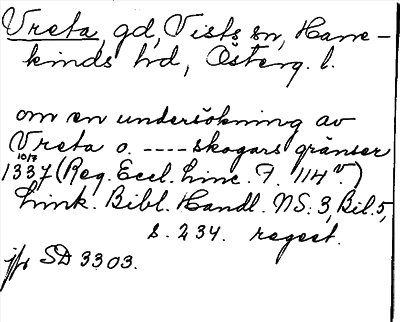 Vreta, gd, Vists sn, Hane-
kinds hd, Österg. l.
om en undersökning av
Vreta o. ---- skogars gränser
10/7
1337 (Reg. Eccl. Linc. F. 114 v.)
Link. Bibl. Handl. NS. 3, Bil. 5,
s. 234. regest.
jfr SD 3303.